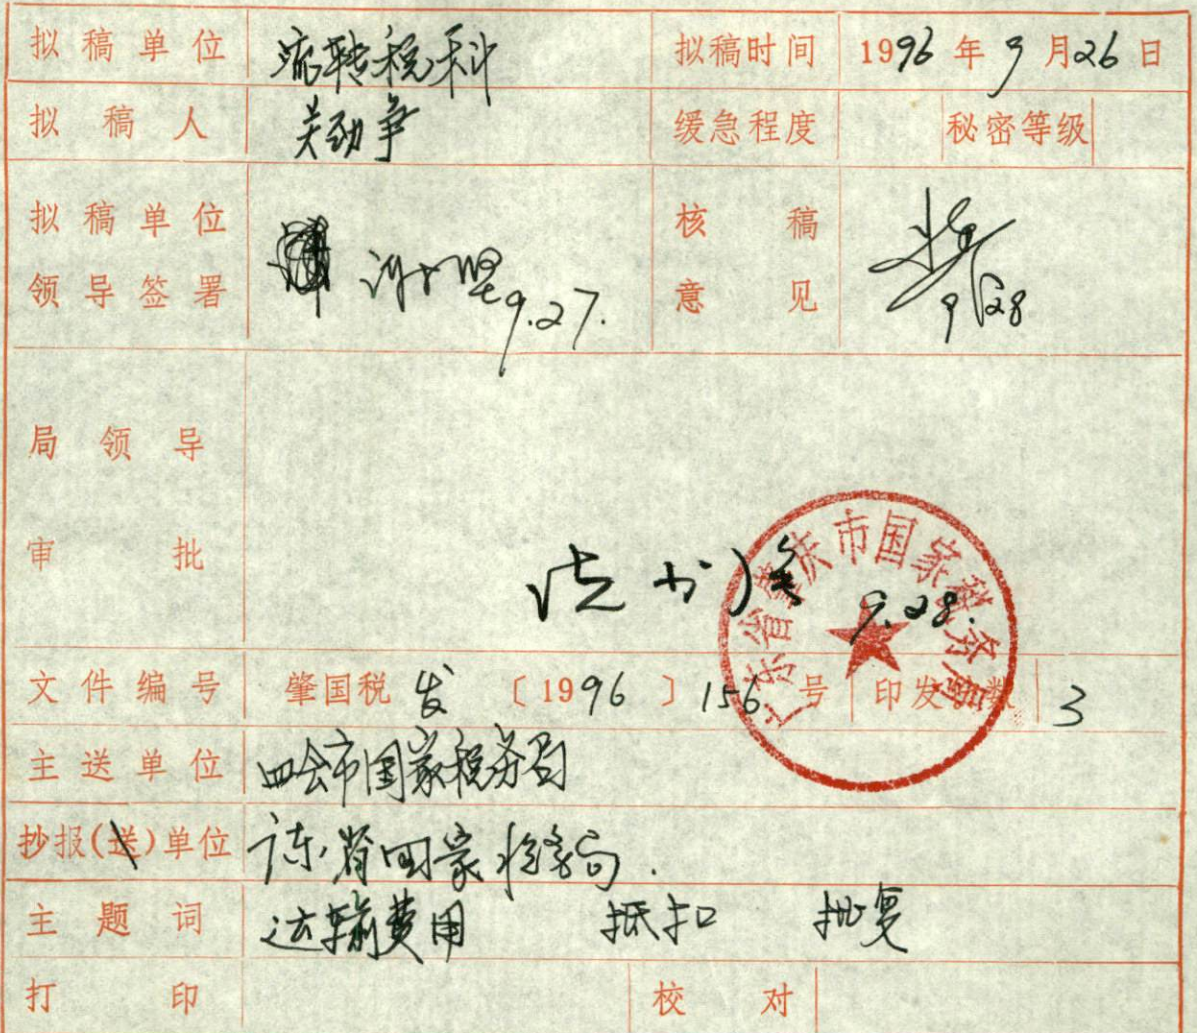 拟稿单位 流转税科 拟稿时间 1996年9月26日
拟稿人 关劲争 缓急程度 秘密等级
拟稿单位 核稿
领导签署 9.27. 意见 9/28
局领导
审批 9.28.
广东省肇庆市国家税务局
文件编号 肇国税发〔1996〕156号 印发份数 3
主送单位 四会市国家税务局
抄报(送)单位 广东省国家税务局.
主题词 运输费用 抵扣 批复
打印 校对